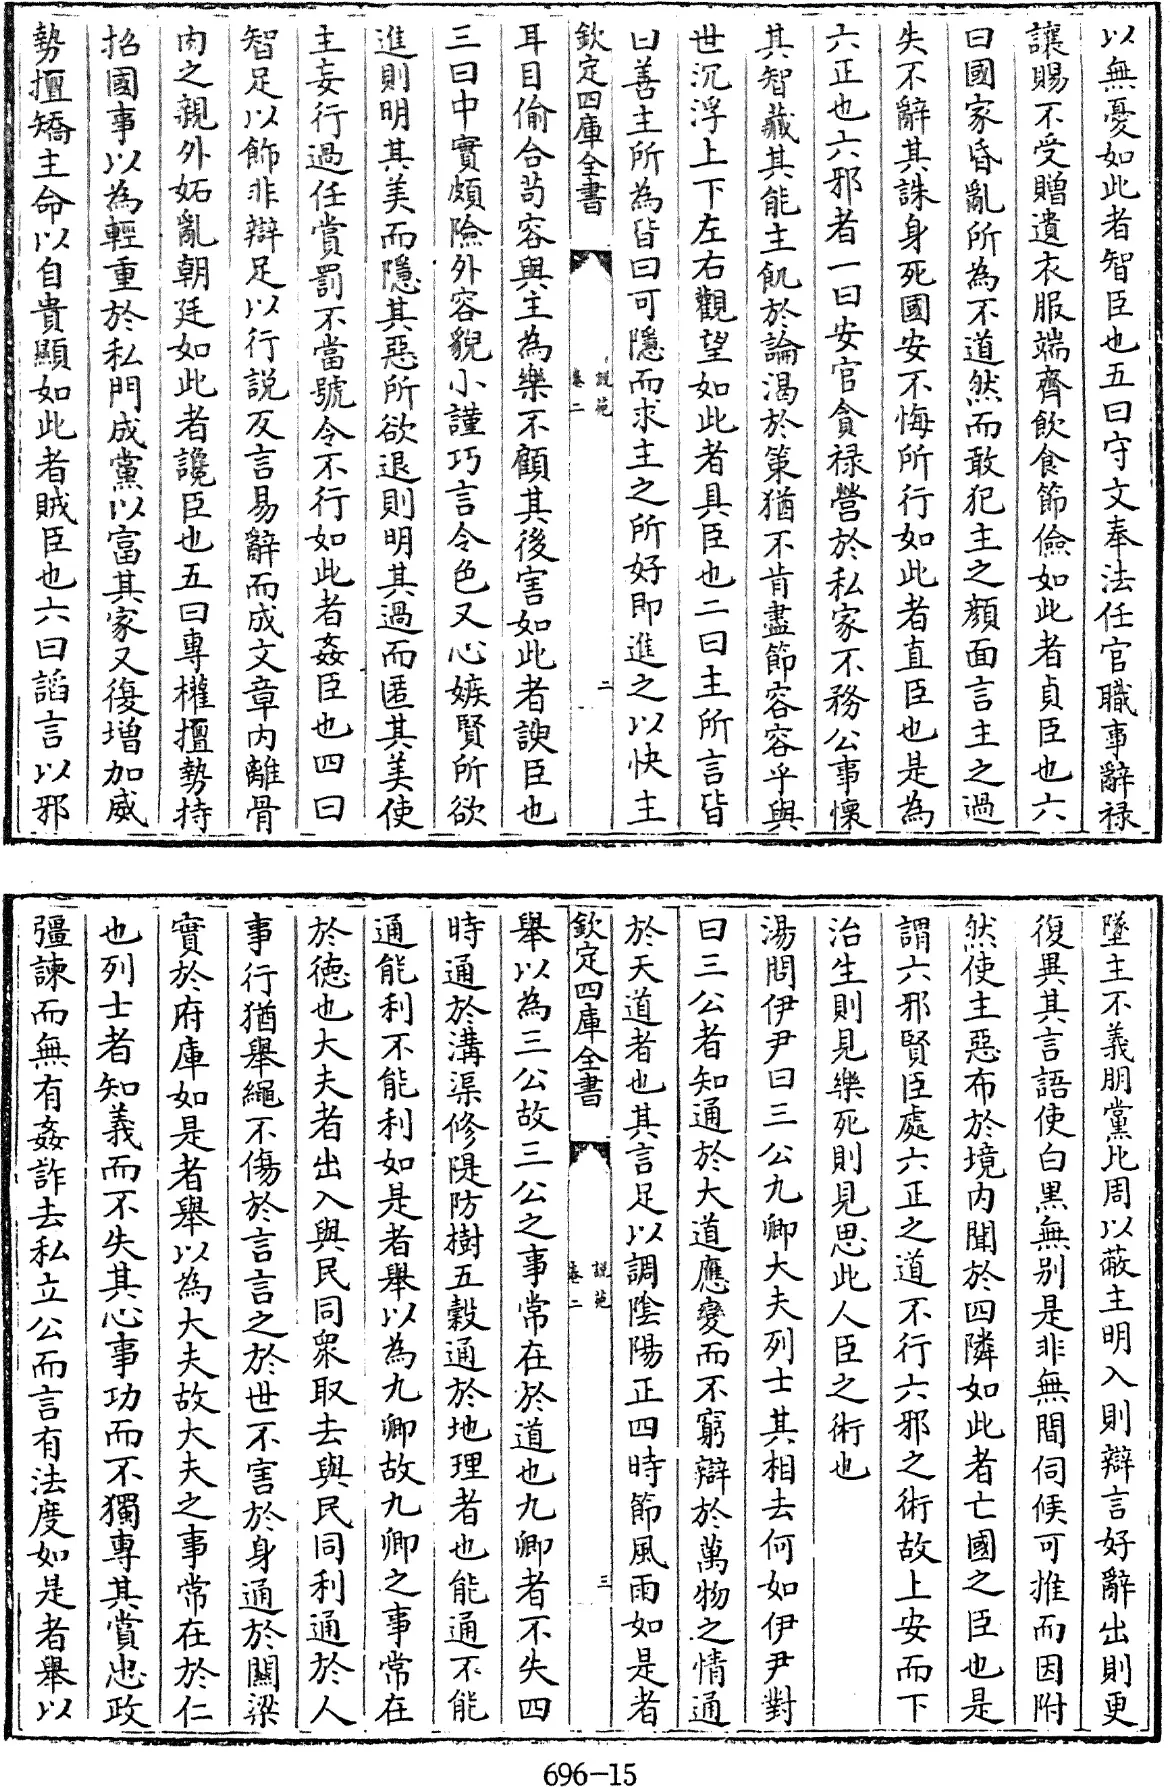 以無憂如此者智臣也五曰守文奉法任官職事辭祿
讓賜不受贈遺衣服端齊飲食節儉如此者貞臣也六
曰國家昏亂所為不道然而敢犯主之顔面言主之過
失不辭其誅身死國安不悔所行如此者直臣也是為
六正也六邪者一曰安官貪祿營於私家不務公事懷
其智藏其能主飢於論渴於策猶不肯盡節容容乎與
世沉浮上下左右觀望如此者具臣也二曰主所言皆
曰善主所為皆曰可隱而求主之所好即進之以快主
欽定四庫全書
說苑
卷二
二
耳目偷合苟容與主為樂不顧其後害如此者諛臣也
三曰中實頗險外容貌小謹巧言令色又心嫉賢所欲
進則明其美而隱其惡所欲退則明其過而匿其美使
主妄行過任賞罰不當號令不行如此者姦臣也四曰
智足以飾非辯足以行説反言易辭而成文章内離骨
肉之親外妬亂朝廷如此者讒臣也五曰專權擅勢持
招國事以為輕重於私門成黨以富其家又復增加威
勢擅矯主命以自貴顯如此者賊臣也六曰謟言以邪
墜主不義朋黨比周以蔽主明入則辯言好辭出則更
復異其言語使白黒無别是非無間伺候可推而因附
然使主惡布於境内聞於四隣如此者亡國之臣也是
謂六邪賢臣處六正之道不行六邪之術故上安而下
治生則見樂死則見思此人臣之術也
湯問伊尹曰三公九卿大夫列士其相去何如伊尹對
曰三公者知通於大道應變而不窮辯於萬物之情通
於天道者也其言足以調隂陽正四時節風雨如是者
欽定四庫全書
說苑
卷二
三
舉以為三公故三公之事常在於道也九卿者不失四
時通於溝渠修隄防樹五穀通於地理者也能通不能
通能利不能利如是者舉以為九卿故九卿之事常在
於德也大夫者出入與民同衆取去與民同利通於人
事行猶舉繩不傷於言言之於世不害於身通於關梁
實於府庫如是者舉以為大夫故大夫之事常在於仁
也列士者知義而不失其心事功而不獨專其賞忠政
彊諫而無有姦詐去私立公而言有法度如是者舉以
696-15